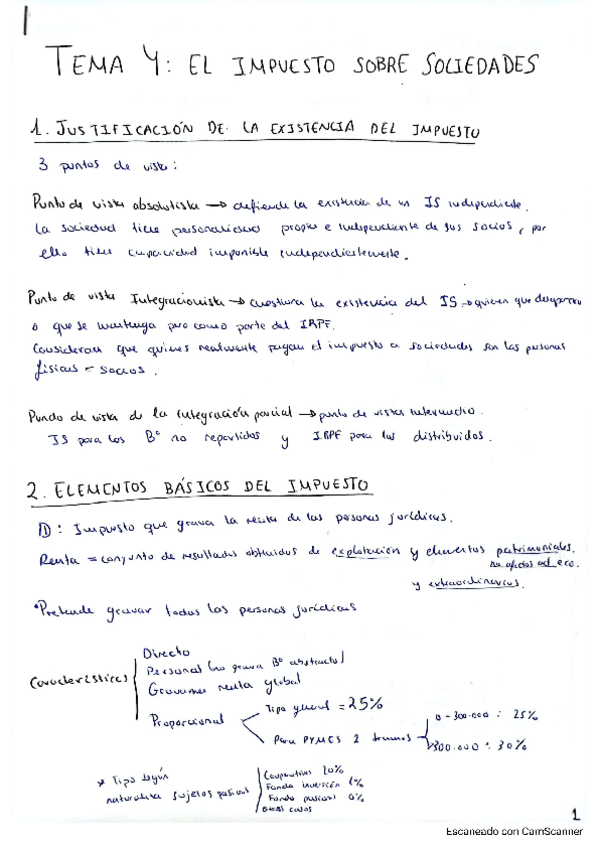 TEMA 4: EL IMPUESTO SOBRE SOCIEDADES
1. JUSTIFICACIÓN DE LA EXISTENCIA DEL IMPUESTO
3 puntos de vista:
Punto de vista absolutista → defiende la existencia de un IS independiente.
La sociedad tiene personalidad propia e independiente de sus socios, por
ello tiene capacidad imponible independientemente.
Punto de vista Integracionista → cuestiona la existencia del IS → quieren que desaparezca
o que se mantenga pero como parte del IRPF.
Consideran que quienes realmente pagan el impuesto a sociedades son las personas
físicas = socios.
Punto de vista de la integración parcial → punto de vista intermedio.
IS para los Bº no repartidos y IRPF para los distribuidos.
2. ELEMENTOS BÁSICOS DEL IMPUESTO
D: Impuesto que grava la renta de las personas jurídicas.
Renta = conjunto de resultados obtenidos de explotación y elementos patrimoniales,
no afectos act. eco.
y extraordinarios.
*Pretende gravar todas las personas jurídicas
Características
Directo
Personal (no grava Bº abstracto)
Gravamen renta global
Proporcional
Tipo general = 25%
Para PYMES 2 tramos
0 - 300.000 : 25%
300.000 : 30%
* Tipo según
naturaleza sujetos pasivos
Cooperativas 20%
Fondo inversión 1%
Fondo pensiones 0%
casos
1
Escaneado con CamScanner